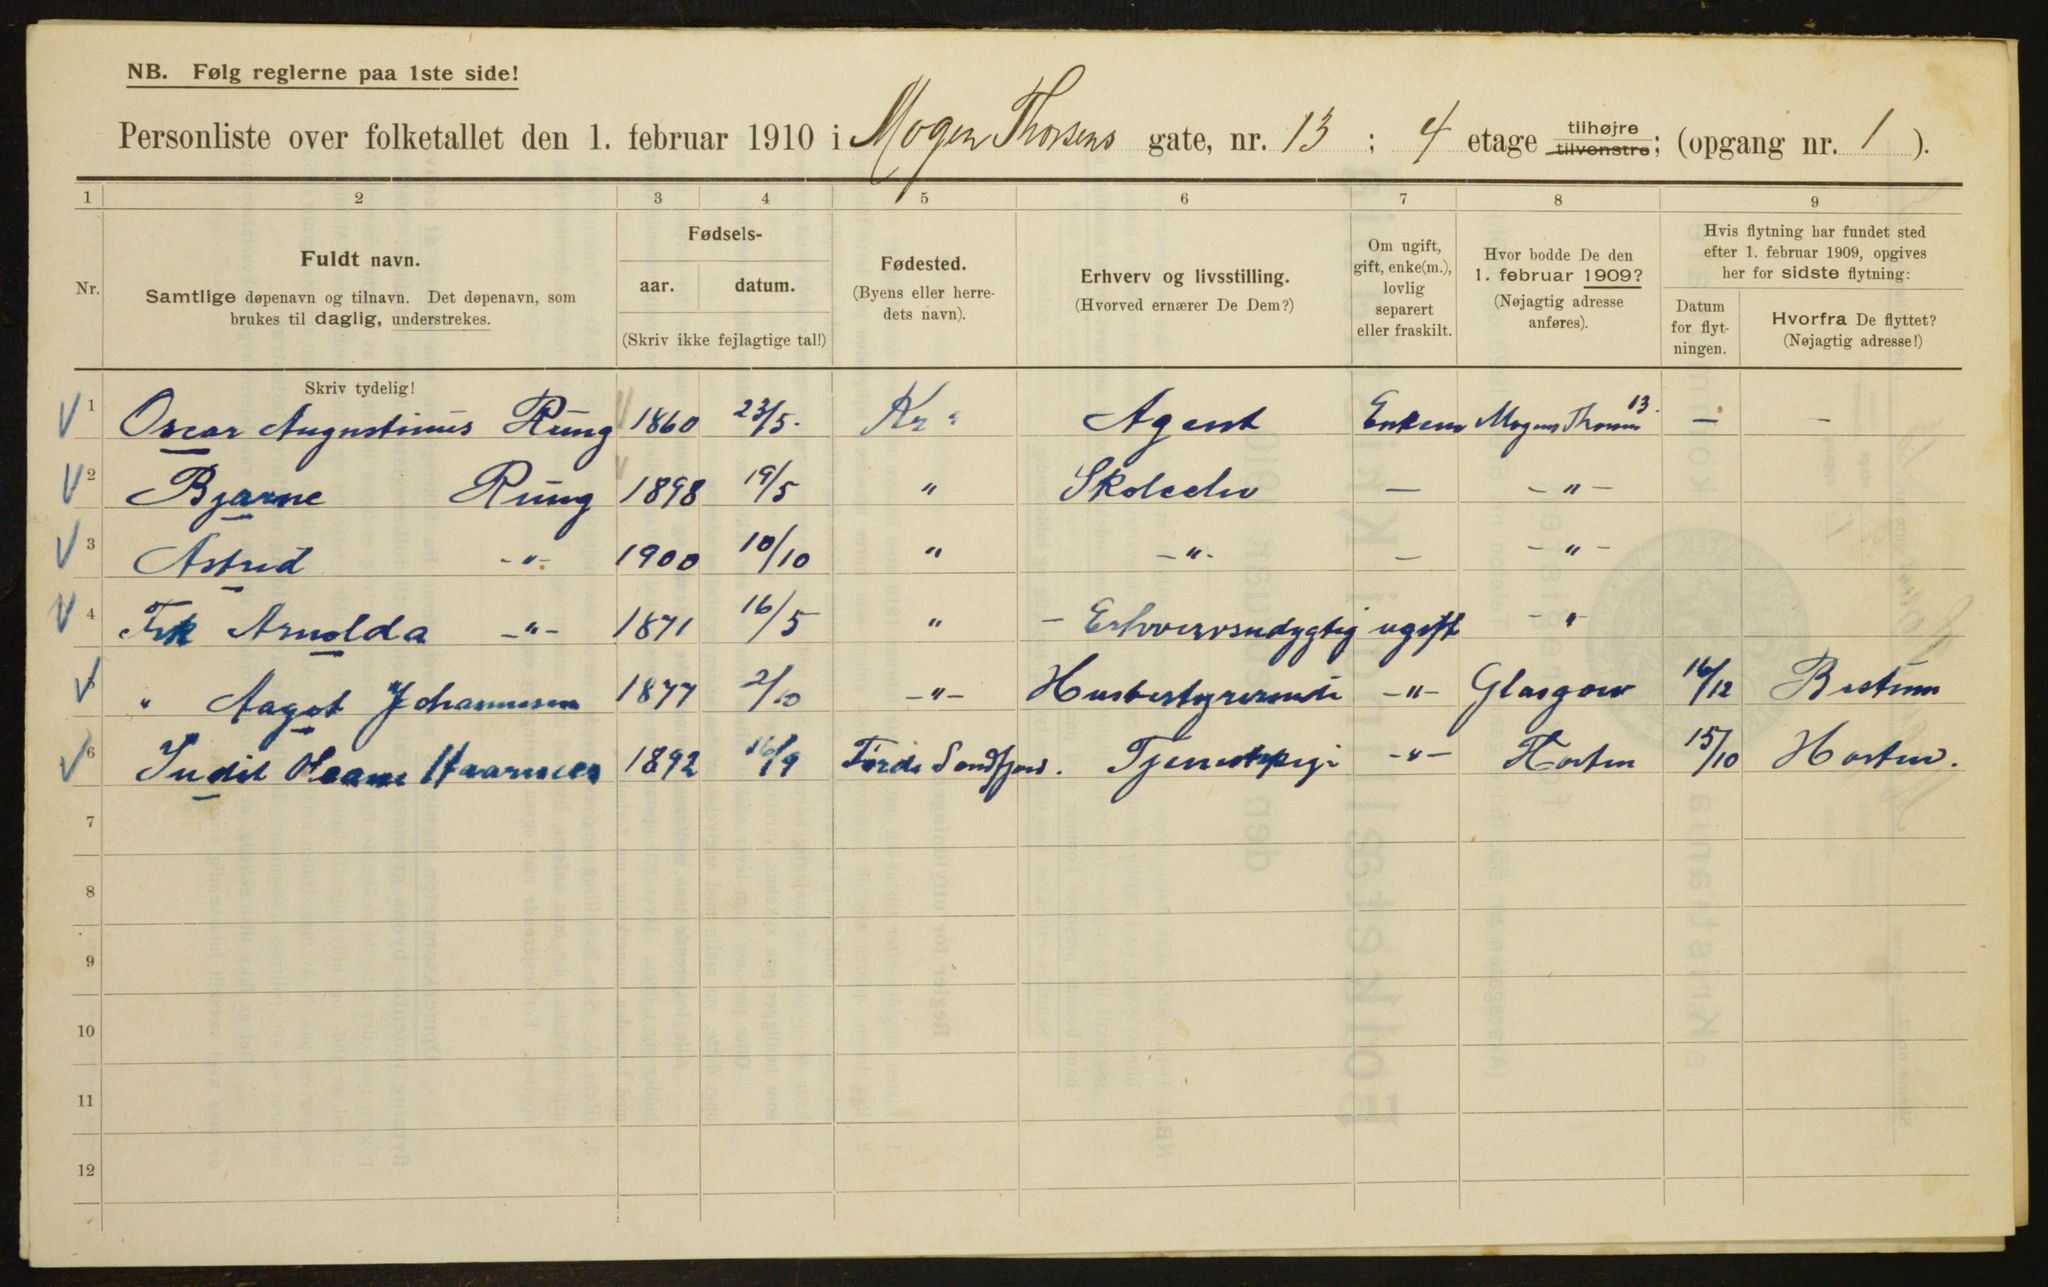 NB. Følg reglerne paa 1ste side!
Personliste over folketallet den 1. februar 1910 i Mogen Thorsens gate, nr. 13 ; 4 etage tilhøjre tilvenstre; (opgang nr. 1 ).
1 2 3 4 5 6 7 8 9
Nr.
Fuldt navn.
Samtlige døpenavn og tilnavn. Det døpenavn, som
brukes til daglig, understrekes.
Fødsels-
aar. datum.
(Skriv ikke fejlagtige tal!)
Fødested.
(Byens eller herre-
dets navn).
Erhverv og livsstilling.
(Hvorved ernærer De Dem?)
Om ugift,
gift, enke(m.),
lovlig
separert
eller fraskilt.
Hvor bodde De den
1. februar 1909?
(Nøjagtig adresse
anføres).
Hvis flytning har fundet sted
efter 1. februar 1909, opgives
her for sidste flytning:
Datum
for flyt-
ningen.
Hvorfra De flyttet?
(Nøjagtig adresse!)
Skriv tydelig!
1 Oscar Augustinus Rung 1860 23/5. Kr. Agent Enkem Mogens Thorsens 13. — —
2 Bjarne Rung 1898 19/5 " Skoleelev — -"-
3 Astrid -"- 1900 10/10 " -"- — -"-
4 Frk Arnolda -"- 1871 16/5 " - Erhvervsudygtig ugift -"
" Aagot Johannesen 1877 2/10 -"- Husbestyrerinde -"- Glasgow 16/12 Bestum
6 Haarnees 1892 16/9 Førde Søndfjord. Tjenestepige -"- Horten 15/10 Horten.
7
8
9
10
11
12